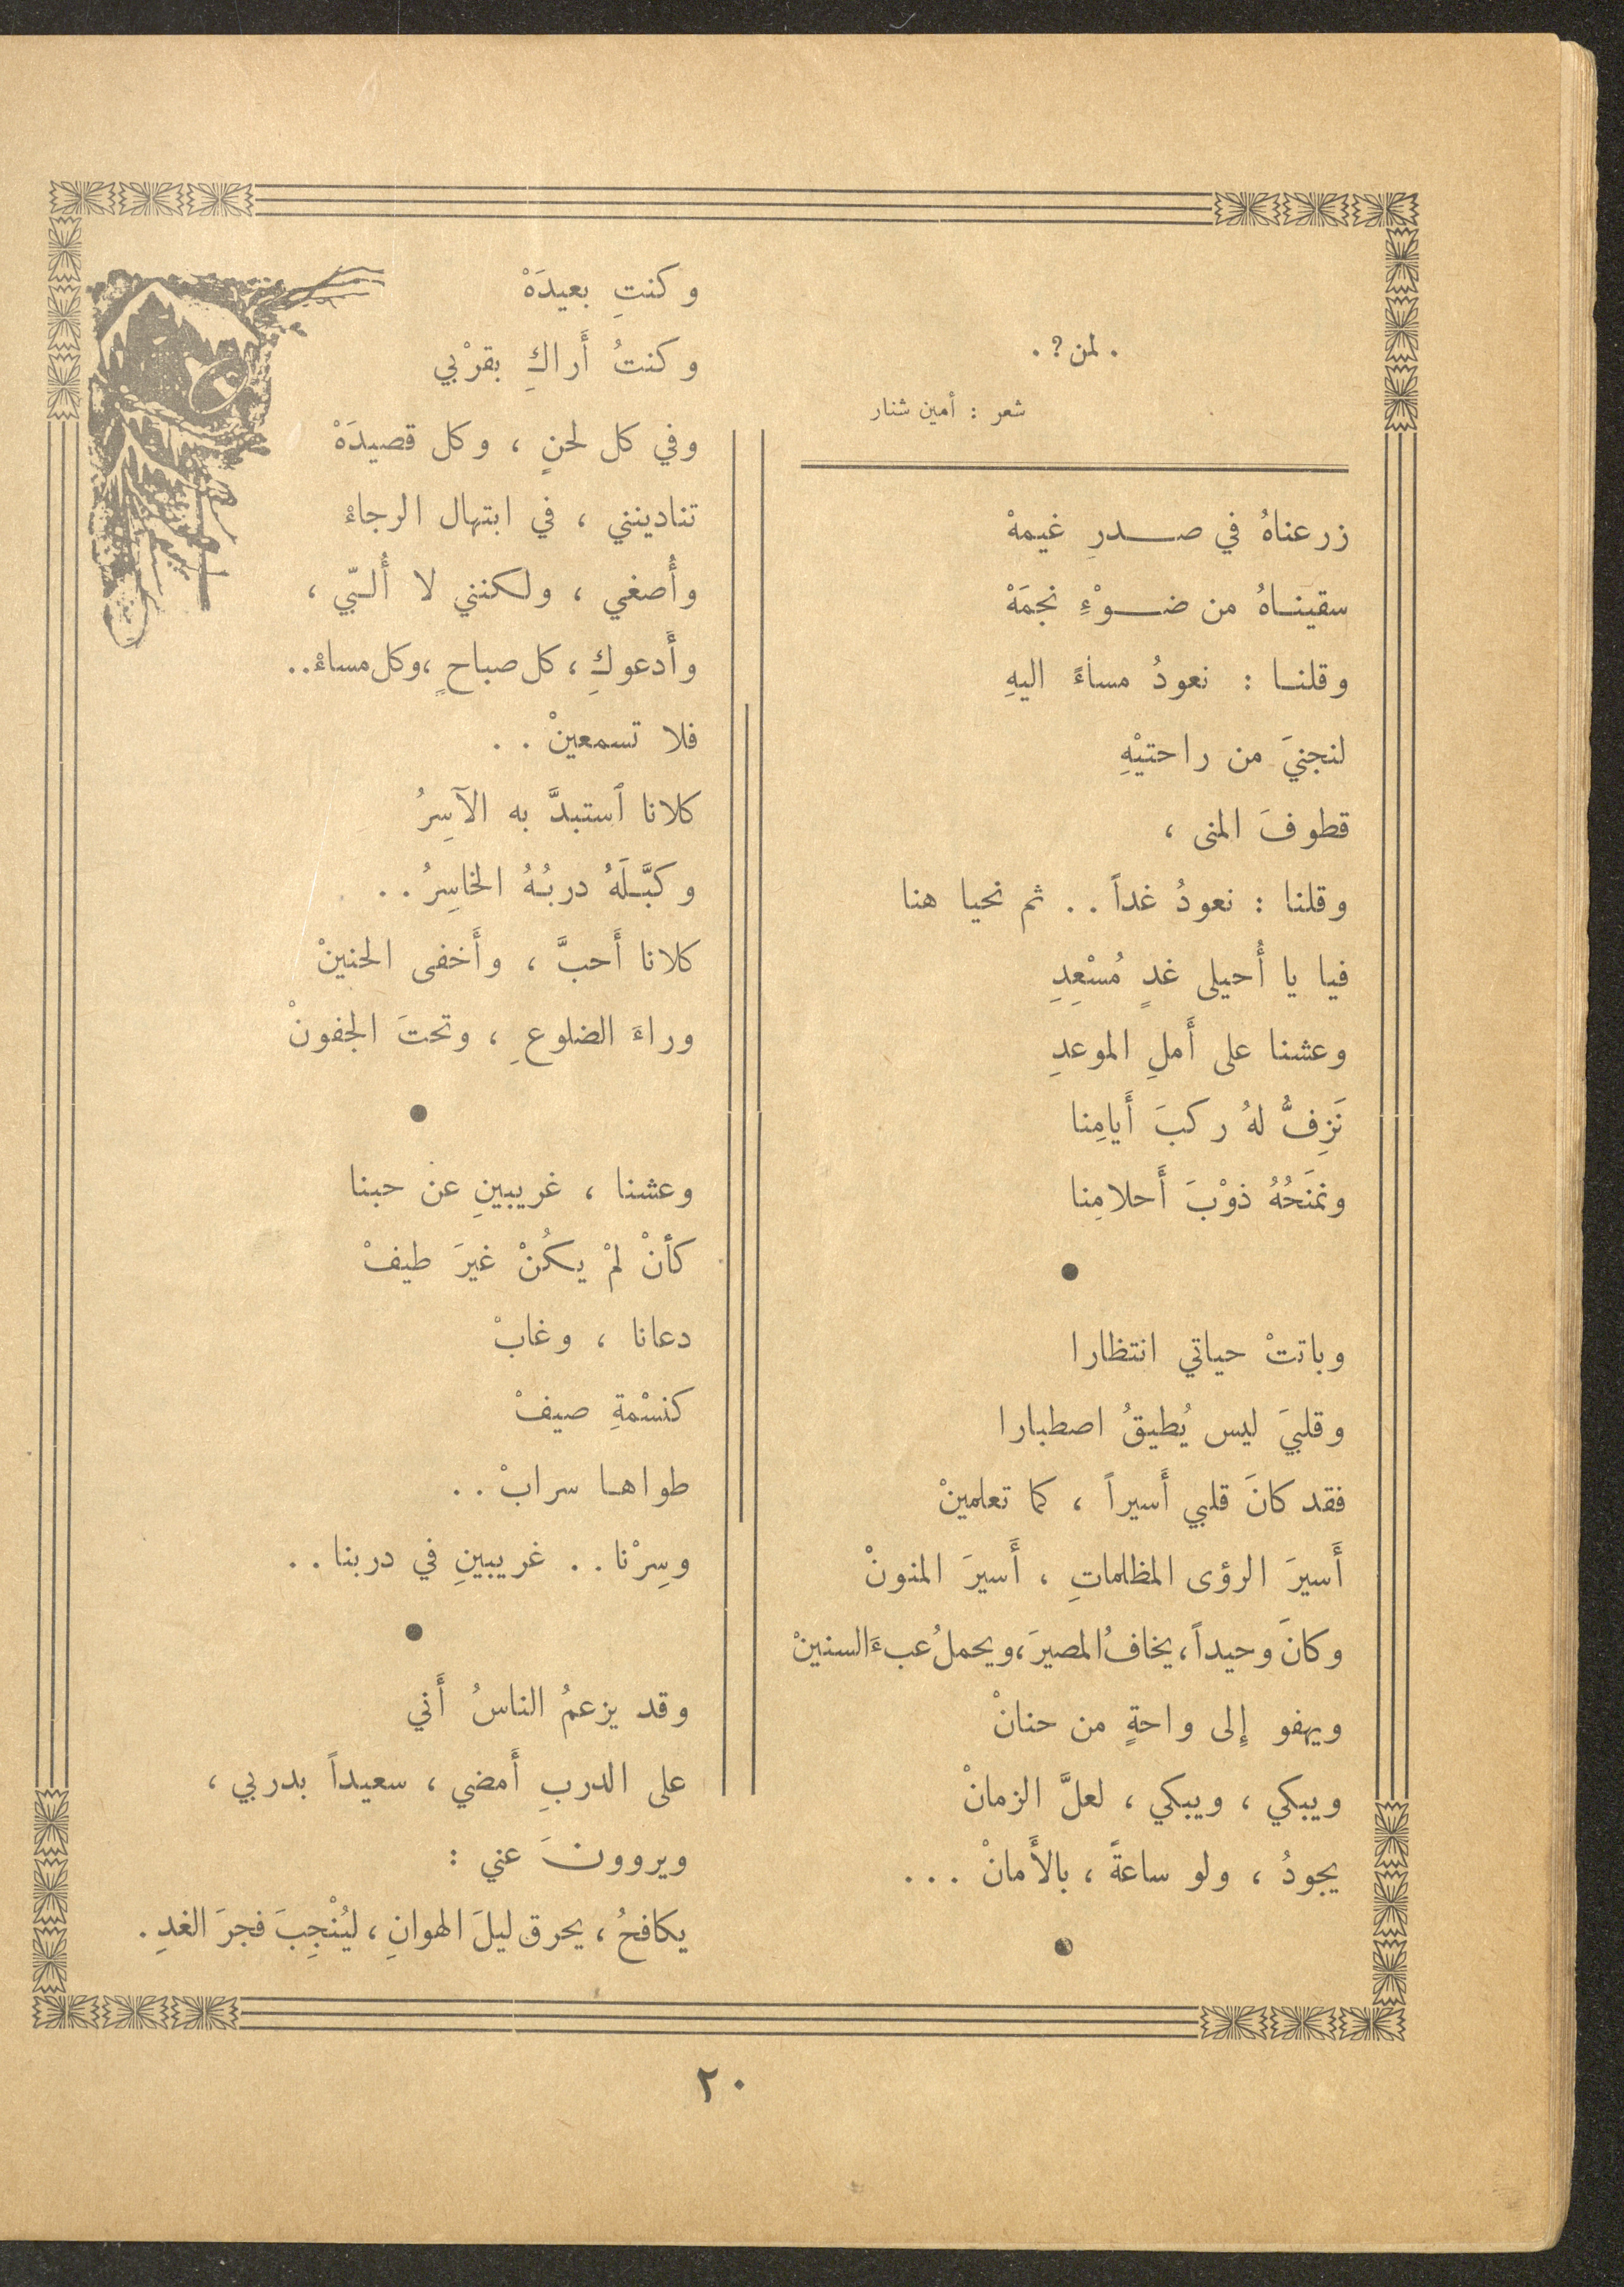 . لمن ؟ .
شعر : أمين شنار
زرعناهُ في صـــدرِ غيمهْ
سقينـاهُ من ضـــوْءِ نجمَهْ
وقلنـا : نعودُ مساءً اليهِ
لنجنيَ من راحتيْهِ
قطوفَ المنى ،
وقلنا : نعودُ غداً . . ثم نحيا هنا
فيا يا أُحيلى غدٍ مُسْعِدِ
وعشنا على أَملِ الموعدِ
نَزِفُّ لهُ ركبَ أَيامِنا
ونمنَحُهُ ذوْبَ أَحلامِنا
●
وباتتْ حياتي انتظارا
وقلبيَ ليس يُطيقُ اصطبارا
فقد كانَ قلبي أَسيراً ، كما تعلمينْ
أَسيرَ الرؤى المظلماتِ ، أَسيرَ المنونْ
وكانَ وحيداً ، يخافُ المصيرَ ، ويحملُ عبءَ السنينْ
ويهفو إِلى واحةٍ من حنانْ
ويبكي ، ويبكي ، لعلَّ الزمانْ
يجودُ ، ولو ساعةً ، بالأَمانْ . . .
●
وكنتِ بعيدَهْ
وكنتُ أَراكِ بقرْبي
وفي كل لحنٍ ، وكل قصيدَهْ
تنادينني ، في ابتهال الرجاءْ
وأُصغي ، ولكنني لا أُلبّي ،
وأَدعوكِ ، كل صباحٍ ، وكل مساءْ . .
فلا تسمعينْ . .
كلانا ٱستبدَّ به الآسِرُ
وكبَّـلَهُ دربُهُ الخاسِرُ . .
كلانا أَحبَّ ، وأَخفى الحنينْ
وراءَ الضلوعِ ، وتحتَ الجفونْ
●
وعشنا ، غريبينِ عن حبنا
كأنْ لمْ يكُنْ غيرَ طيفْ
دعانا ، وغابْ
كنسْمةِ صيفْ
طواهـا سرابْ . .
وسِرْنا . . غريبينِ في دربنا . .
●
وقد يزعمُ الناسُ أَني
على الدربِ أَمضي ، سعيداً بدربي ،
ويروونَ عني :
يكافحُ ، يحرق ليلَ الهوانِ ، ليُنْجِبَ فجرَ الغدِ .
٢٠